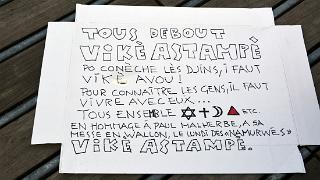 TOUS DEBOUT
VIKÈ ASTAMPÈ
PO CONÈCHE LÈS DJINS, I FAUT
VIKÈ AVOU!
POUR CONNAÎTRE LES GENS, IL FAUT
VIVRE AVEC EUX...
TOUS ENSEMBLE ✡ + ☽ ▲ ETC.
EN HOMMAGE À PAUL MALHERBE, A SA
MESSE EN WALLON, LE LUNDI DES «NAMURWÈS»
VIKÈ ASTAMPÈ.